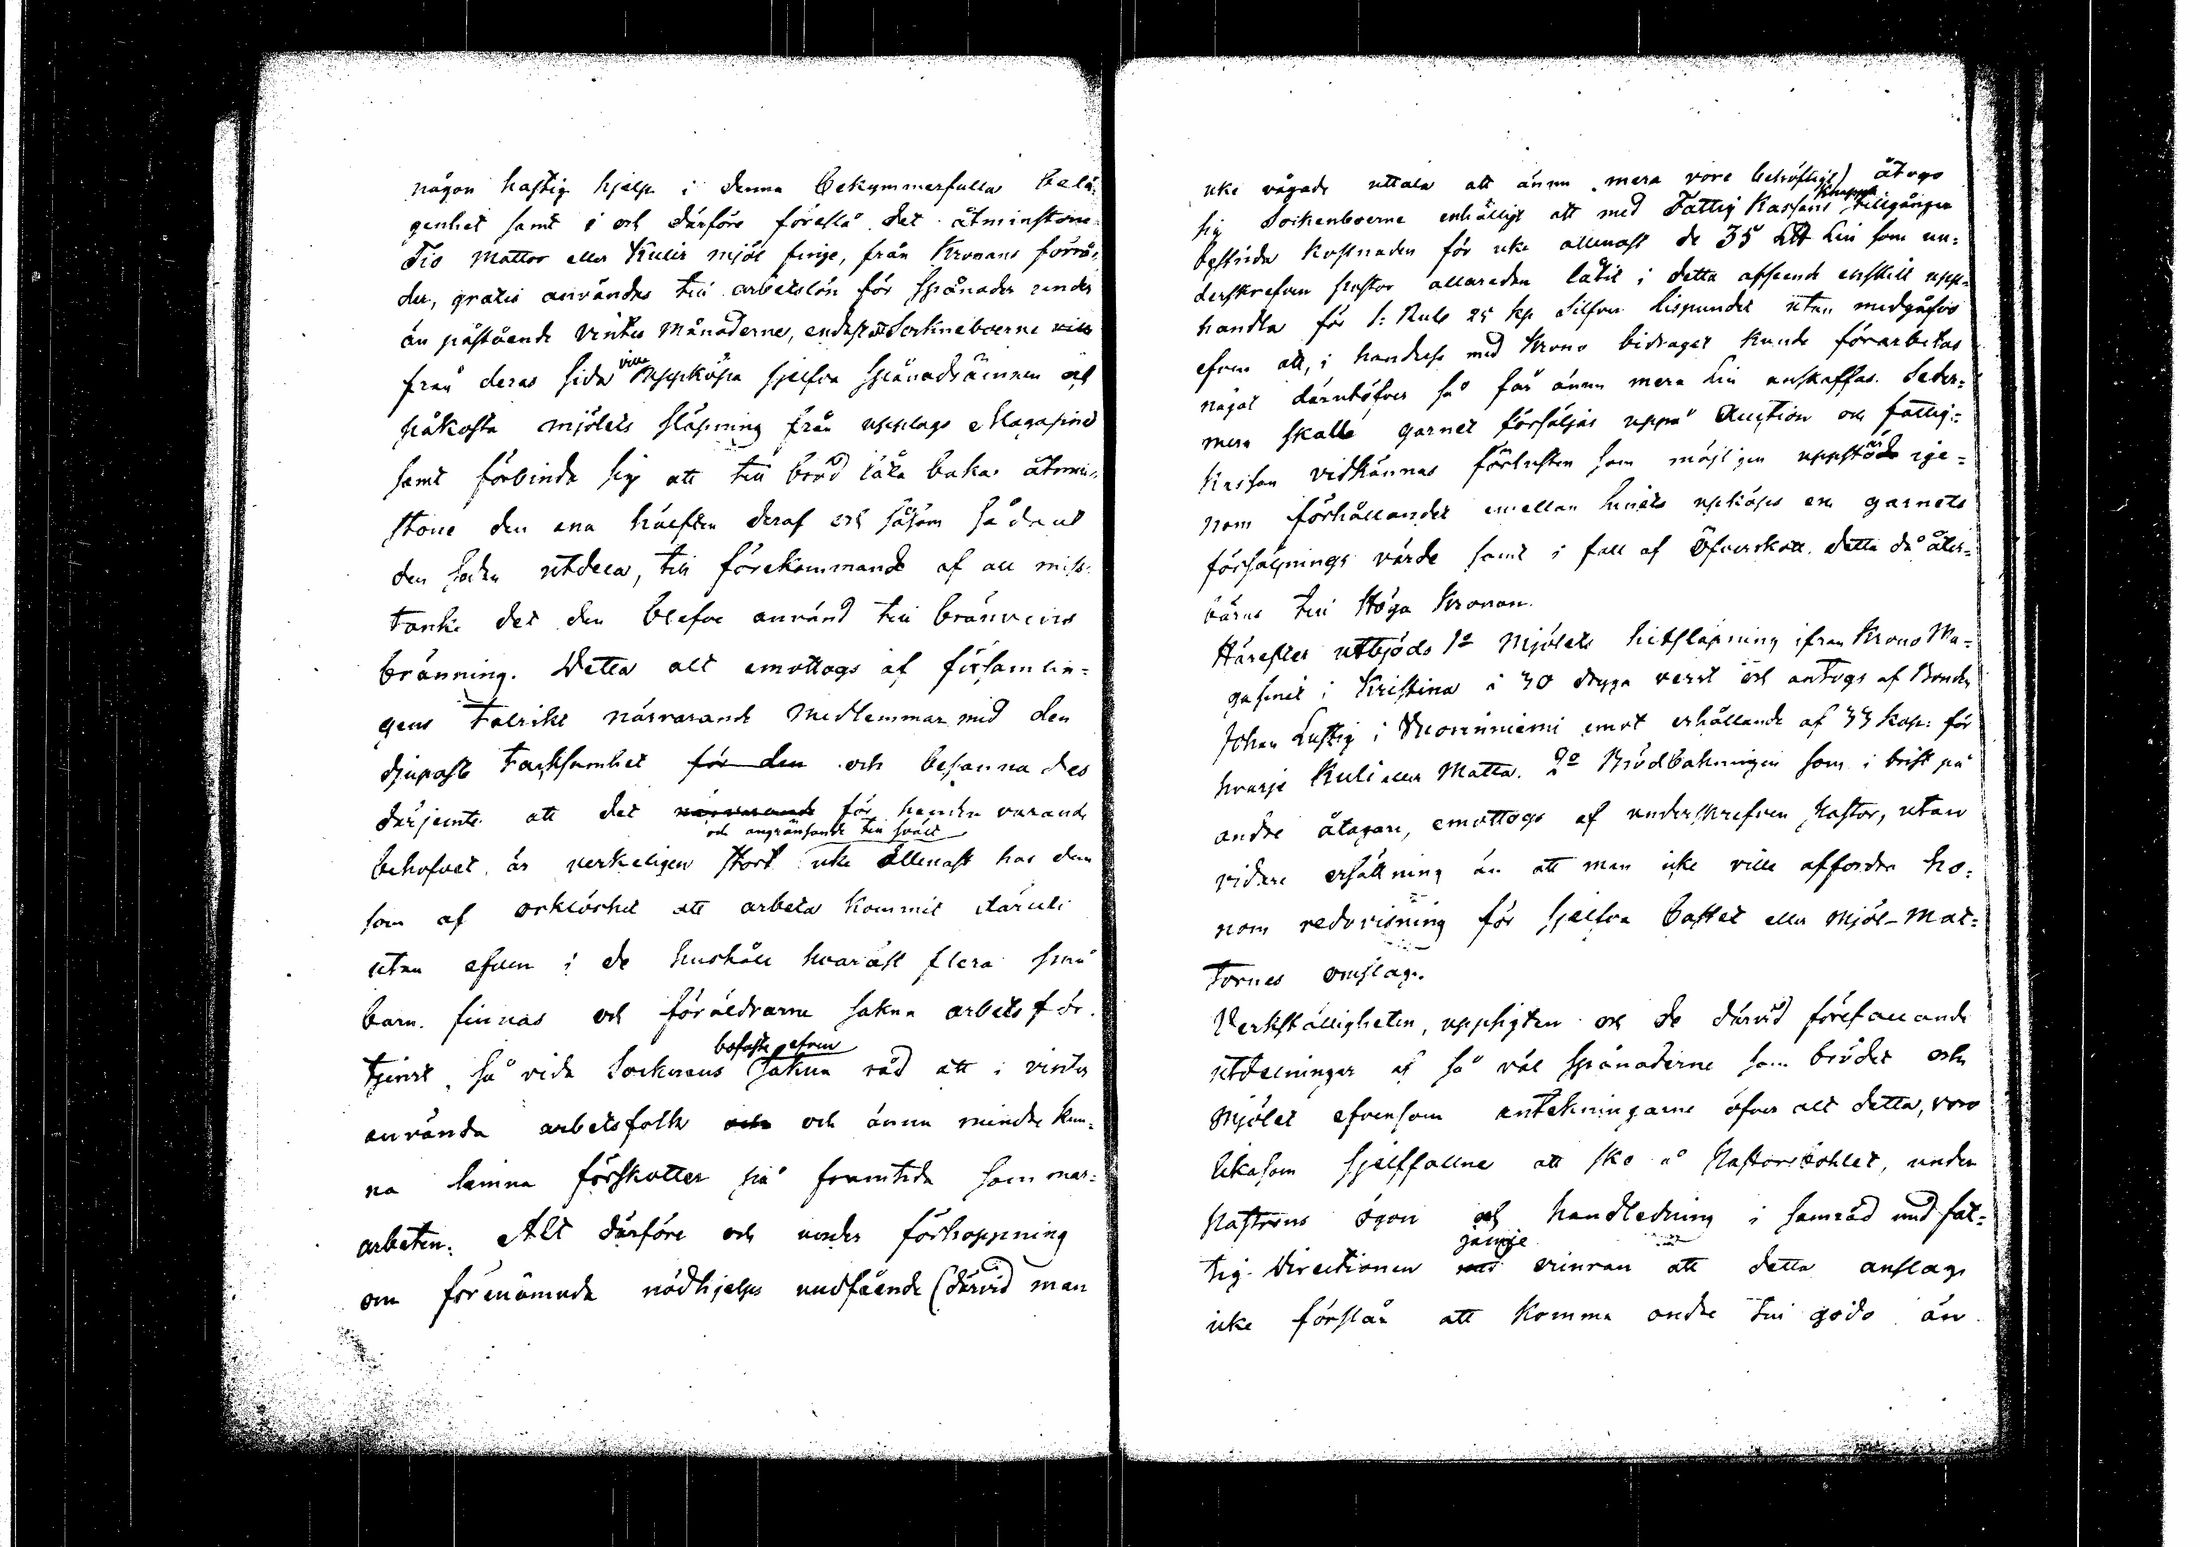 någon hastig hjelp i denna bekymmerfulla belä-
genhet samt i och därföre föreslå det åtminstone
Tio Mattor eller Kulir mjöl finge, från Kronans förrå-
der, gratis användas till arbetslön för spånader under
än påstående vinter Månaderne, endast att Sockneboerne
från deras sida ville uppköpa sjelfva spånadsämnen och
påkosta mjölets släpning från upplags Magasinet
samt förbinda sig att till bröd låta baka åtmin-
stone den ena hälften deraf och såsom sådant
den sedan utdela, till förekommande af all miss-
tanke det den blefve använd till bränvins
bränning. Detta alt emottogs af församlin-
gens talrikt närvarande Medlemmar med den
djupaste tacksamhet för den och besannades
därjemte att det närvarande för handen varande
behofvet är verkeligen stort och angränsande till svält icke allenast hos dem
som af orklöshet att arbeta kommit däruti
utan efven i de hushåll hvaräst flera små
barn finnas och föräldrarne sakna arbets för-
tjenst, så vida Socknens bofaste efven sakna råd att i vinter
använda arbetsfolk och och ännu mindre kun-
na lemna förskotter på framtida sommar-
arbeten. Alt därföre och under förhoppning
om förenämnda nödhjelps undfående (därvid man
icke vågade uttala att ännu mera vore behöfligt) åtogo
sig Sockenboerne enhälligt att med Fattig Kassans knappa tillgångar
bestrida kostnaden för icke allenast de 35 L℔ Lin som un-
derskrefven Pastor allaredan låtit i detta afseende enskilt upp-
handla för 1: Rub 25 kp Silfver Lispundet utan medgåfvos
efven att, i händelse med Krono bidraget kunde förarbetas
något därutöfver så får ännu mera Lin anskaffas. Seder-
mera skall garnet försäljas uppå Auction och fattig-
kassan vidkännas förlusten som möjligen uppstår ige-
nom förhållandet emellan Linets uphöps och garnets
försäljnings värde samt i fall af Öfverskott detta då åter-
bäras till Höga Kronan.
Härefter utbjöds 1o Mjölets hitsläpning ifrån Krono Ma-
gasinet i Kristina å 30 dryga verst och antogs af Bonden
Johan Lustig i Vuorinniemi emot erhållande af 33 kop: för
hvarje Kuli eller Matta. 2o Brödbakningen som i brist på
andre åtagare, emottogs af underskrefven Pastor, utan
vidare ersättning än att man icke ville affordra ho-
nom redovisning för sjelfva bastet eller Mjöl-Mat-
tornes omslag.
Verkställigheten, uppsigten och de därvid förefallande
utdelningar af så väl spånaderne som brödet och
Mjölet efvensom antekningarne öfver alt detta, voro
likasom sjelffallne att ske å Pastorsbohlet, under
Pastorns ögon och handledning i samråd med fat-
tig Directionen jämte erinran att detta anslag
icke förslår att komma andre till godo än